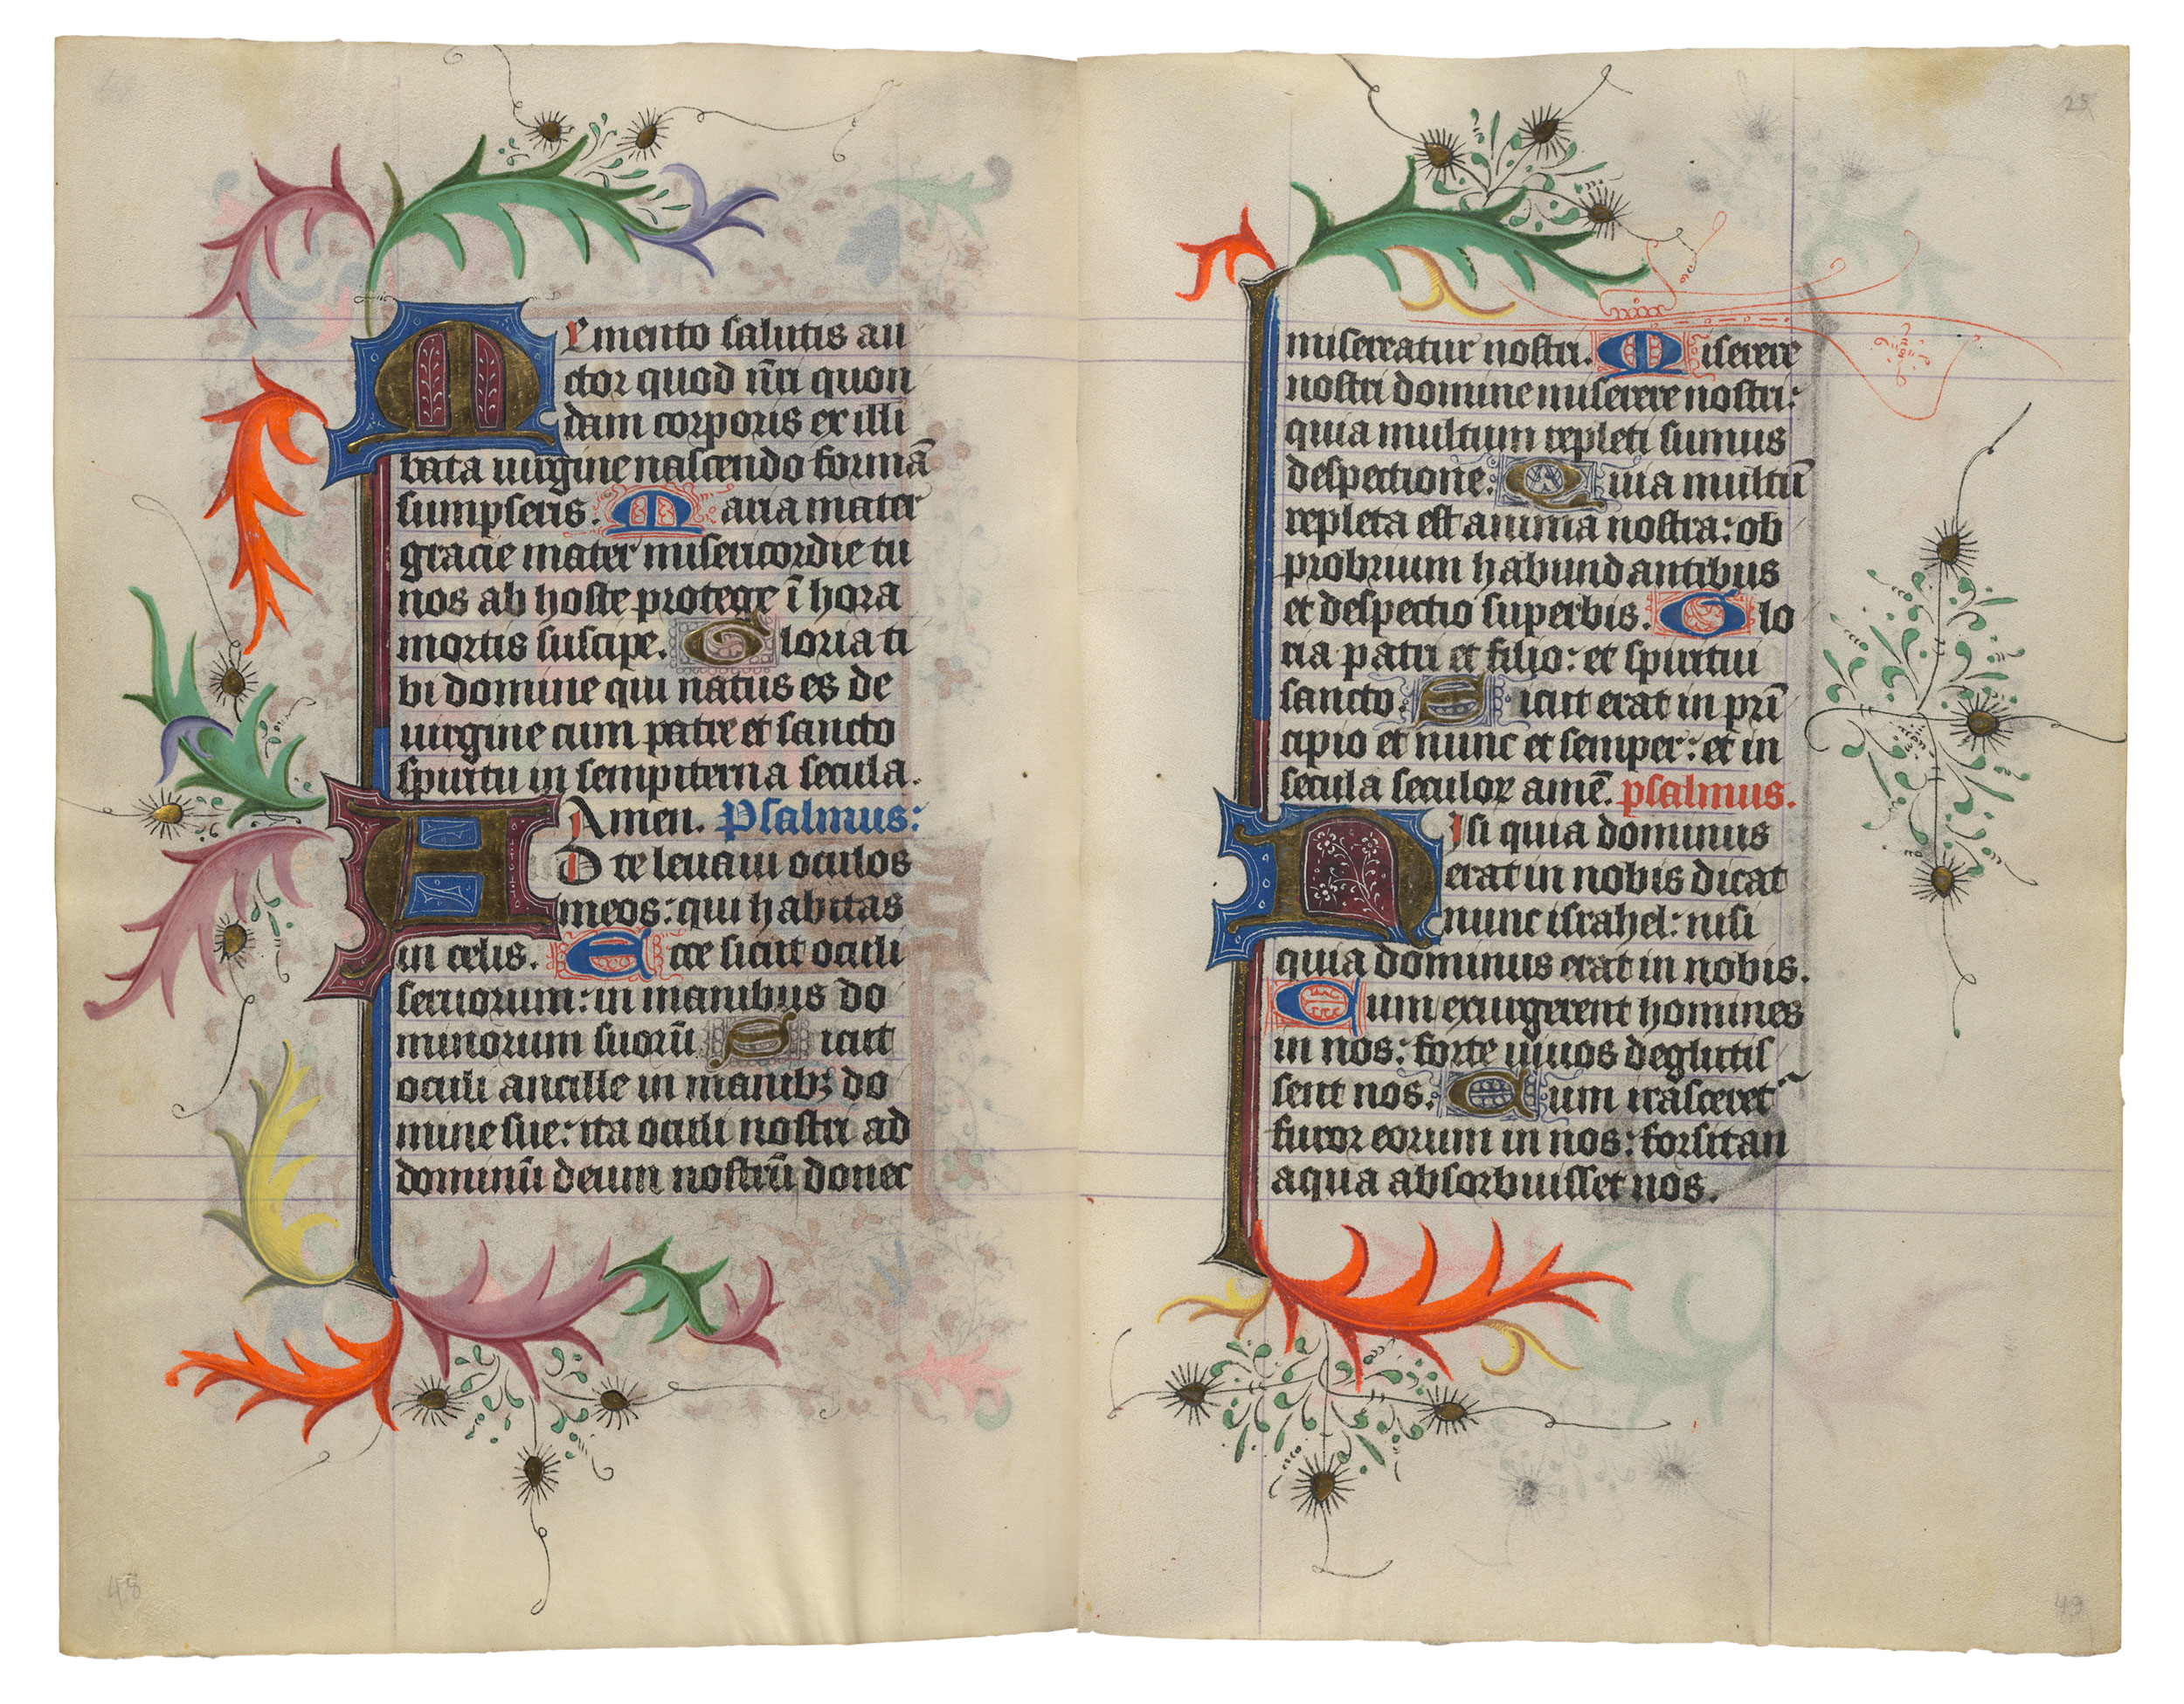 Memento salutis au
ctor quod nr̄i quon
dam corporis ex illi
bata uirgine nascendo formā
sumpseris. Maria mater
gracie mater misericordie tu
nos ab hoste protege ī hora
mortis suscipe. Gloria ti
bi domine qui natus es de
uirgine cum patre et sancto
spiritu in sempiterna secula.
Amen. Psalmus:
AD te leuaui oculos
meos: qui habitas
in celis. Ecce sicut oculi
seruorum: in manibus do
minorum suorū Sicut
oculi ancille in manibꝫ do
mine sue: ita oculi nostri ad
dominū deum nostrū donec
48
25
misereatur nostri. Miserere
nostri domine miserere nostri:
quia multum repleti sumus
despectione. Quia multū
repleta est anima nostra: ob
probrium habundantibus
et despectio superbis. Glo
ria patri et filio: et spiritui
sancto. Sicut erat in prī
cipio et nunc et semper: et in
secula seculoꝝ amē. psalmus.
NIsi quia dominus
erat in nobis dicat
nunc israhel: nisi
quia dominus erat in nobis.
Cum exurgerent homines
in nos: forte uiuos deglutis
sent nos. Cum irasceret᷑
furor eorum in nos: forsitan
aqua absorbuisset nos.
49